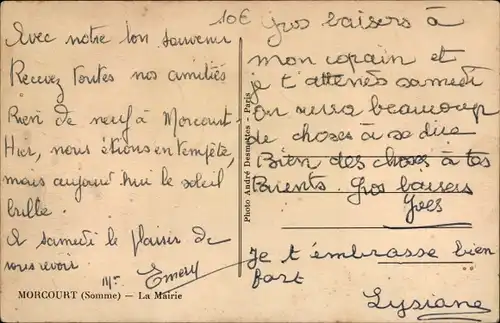 Avec notre bon souvenir
Recevez toutes nos amitiés
Rien de neuf à Morcourt
Hier, nous étions en tempête,
mais aujourd'hui le soleil
brille.
A samedi le plaisir de
vous revoir.
Emery
MORCOURT (Somme) — La Mairie
Photo André Desmottes - Paris
10€
Gros baisers à
mon copain et
je t'attends samedi
On aura beaucoup
de choses à se dire
Bien des choses à tes
Parents. Gros baisers
Yves
Je t'embrasse bien
fort
Lysiane